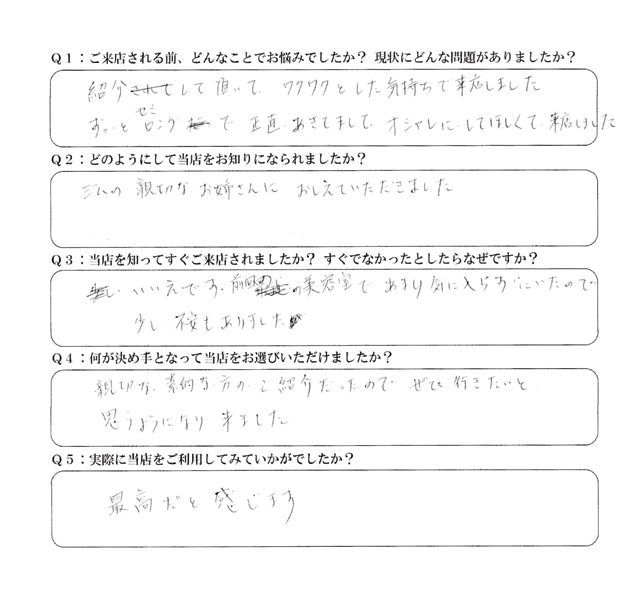 Q1：ご来店される前、どんなことでお悩みでしたか？ 現状にどんな問題がありましたか？
紹介して頂いて、ワクワクとした気持ちで来店しました
ずっとセミロングで 正直、あきてまして、オシャレに、してほしくて、来店しました
Q2：どのようにして当店をお知りになられましたか？
ジムの 親切な お姉さんに おしえていただきました
Q3：当店を知ってすぐご来店されましたか？ すぐでなかったとしたらなぜですか？
いいえです、前回の美容室で あまり気に入らずにいたので
少し 不安もありました
Q4：何が決め手となって当店をお選びいただけましたか？
親切な、素的な方の、ご紹介だったので ぜひ 行きたいと
思うようになり 来ました
Q5：実際に当店をご利用してみていかがでしたか？
最高だと 感じます